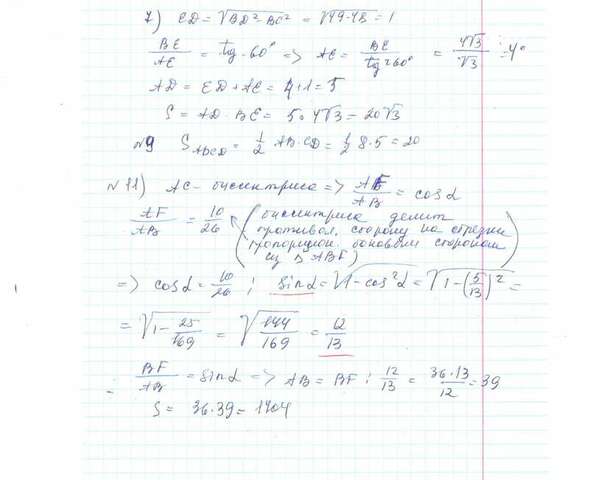 7) ED = √BD² - BC² = √49-48 = 1
BE/AE = tg 60° => AE = BE/tg 60° = 4√3/√3 = 4
AD = ED + AE = 4+1 = 5
S = AD · BE = 5 · 4√3 = 20√3
№9 S ABCD = 1/2 AB·CD = 1/2 8·5 = 20
№11) AC - биссектриса => AF/AB = cos α
AF/AB = 10/26 (биссектриса делит
противол. сторону на отрезки
пропорцион. боковым сторонам
из Δ ABF)
=> cos α = 10/26 ; sin α = √1-cos²α = √1-(5/13)² =
= √1 - 25/169 = √144/169 = 12/13
BF/AB = sin α => AB = BF : 12/13 = 36·13/12 = 39
S = 36·39 = 1404